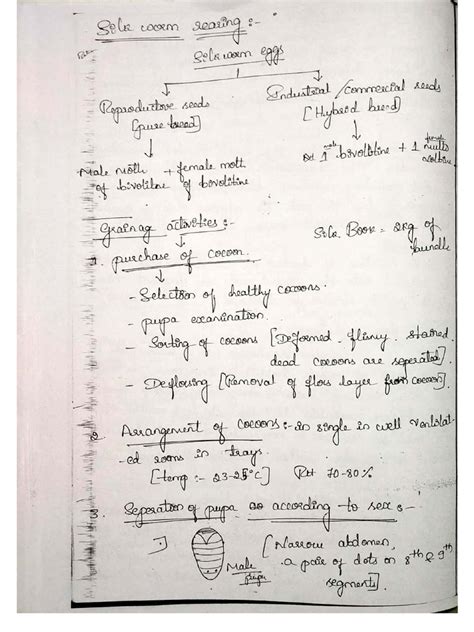 Silk worm rearing :-
Silk worm eggs
Reproductive seeds
[pure breed]
Industrial / commercial seeds
[Hybrid breed]
Male moth + female mott
of bivoltine of bivoltine
1 male bivoltine + 1 female multi
voltine
Grainag activities :-
Silk Book = 2kg of
bundle
1. purchase of cocoon.
- Selection of healthy cocoons.
- pupa examination.
- Sorting of cocoons [Deformed, flimsy, stained
dead cocoons are seperated]
- Deflossing [Removal of floss layer from cocoon]
2. Arrangement of cocoons :- in single in well ventilat-
-ed rooms in trays.
[temp :- 23-25°C] RH 70-80%
3. Seperation of pupa as according to sex :-
Male
pupa
[Narrow abdomen,
a pair of dots on 8th & 9th
segments].